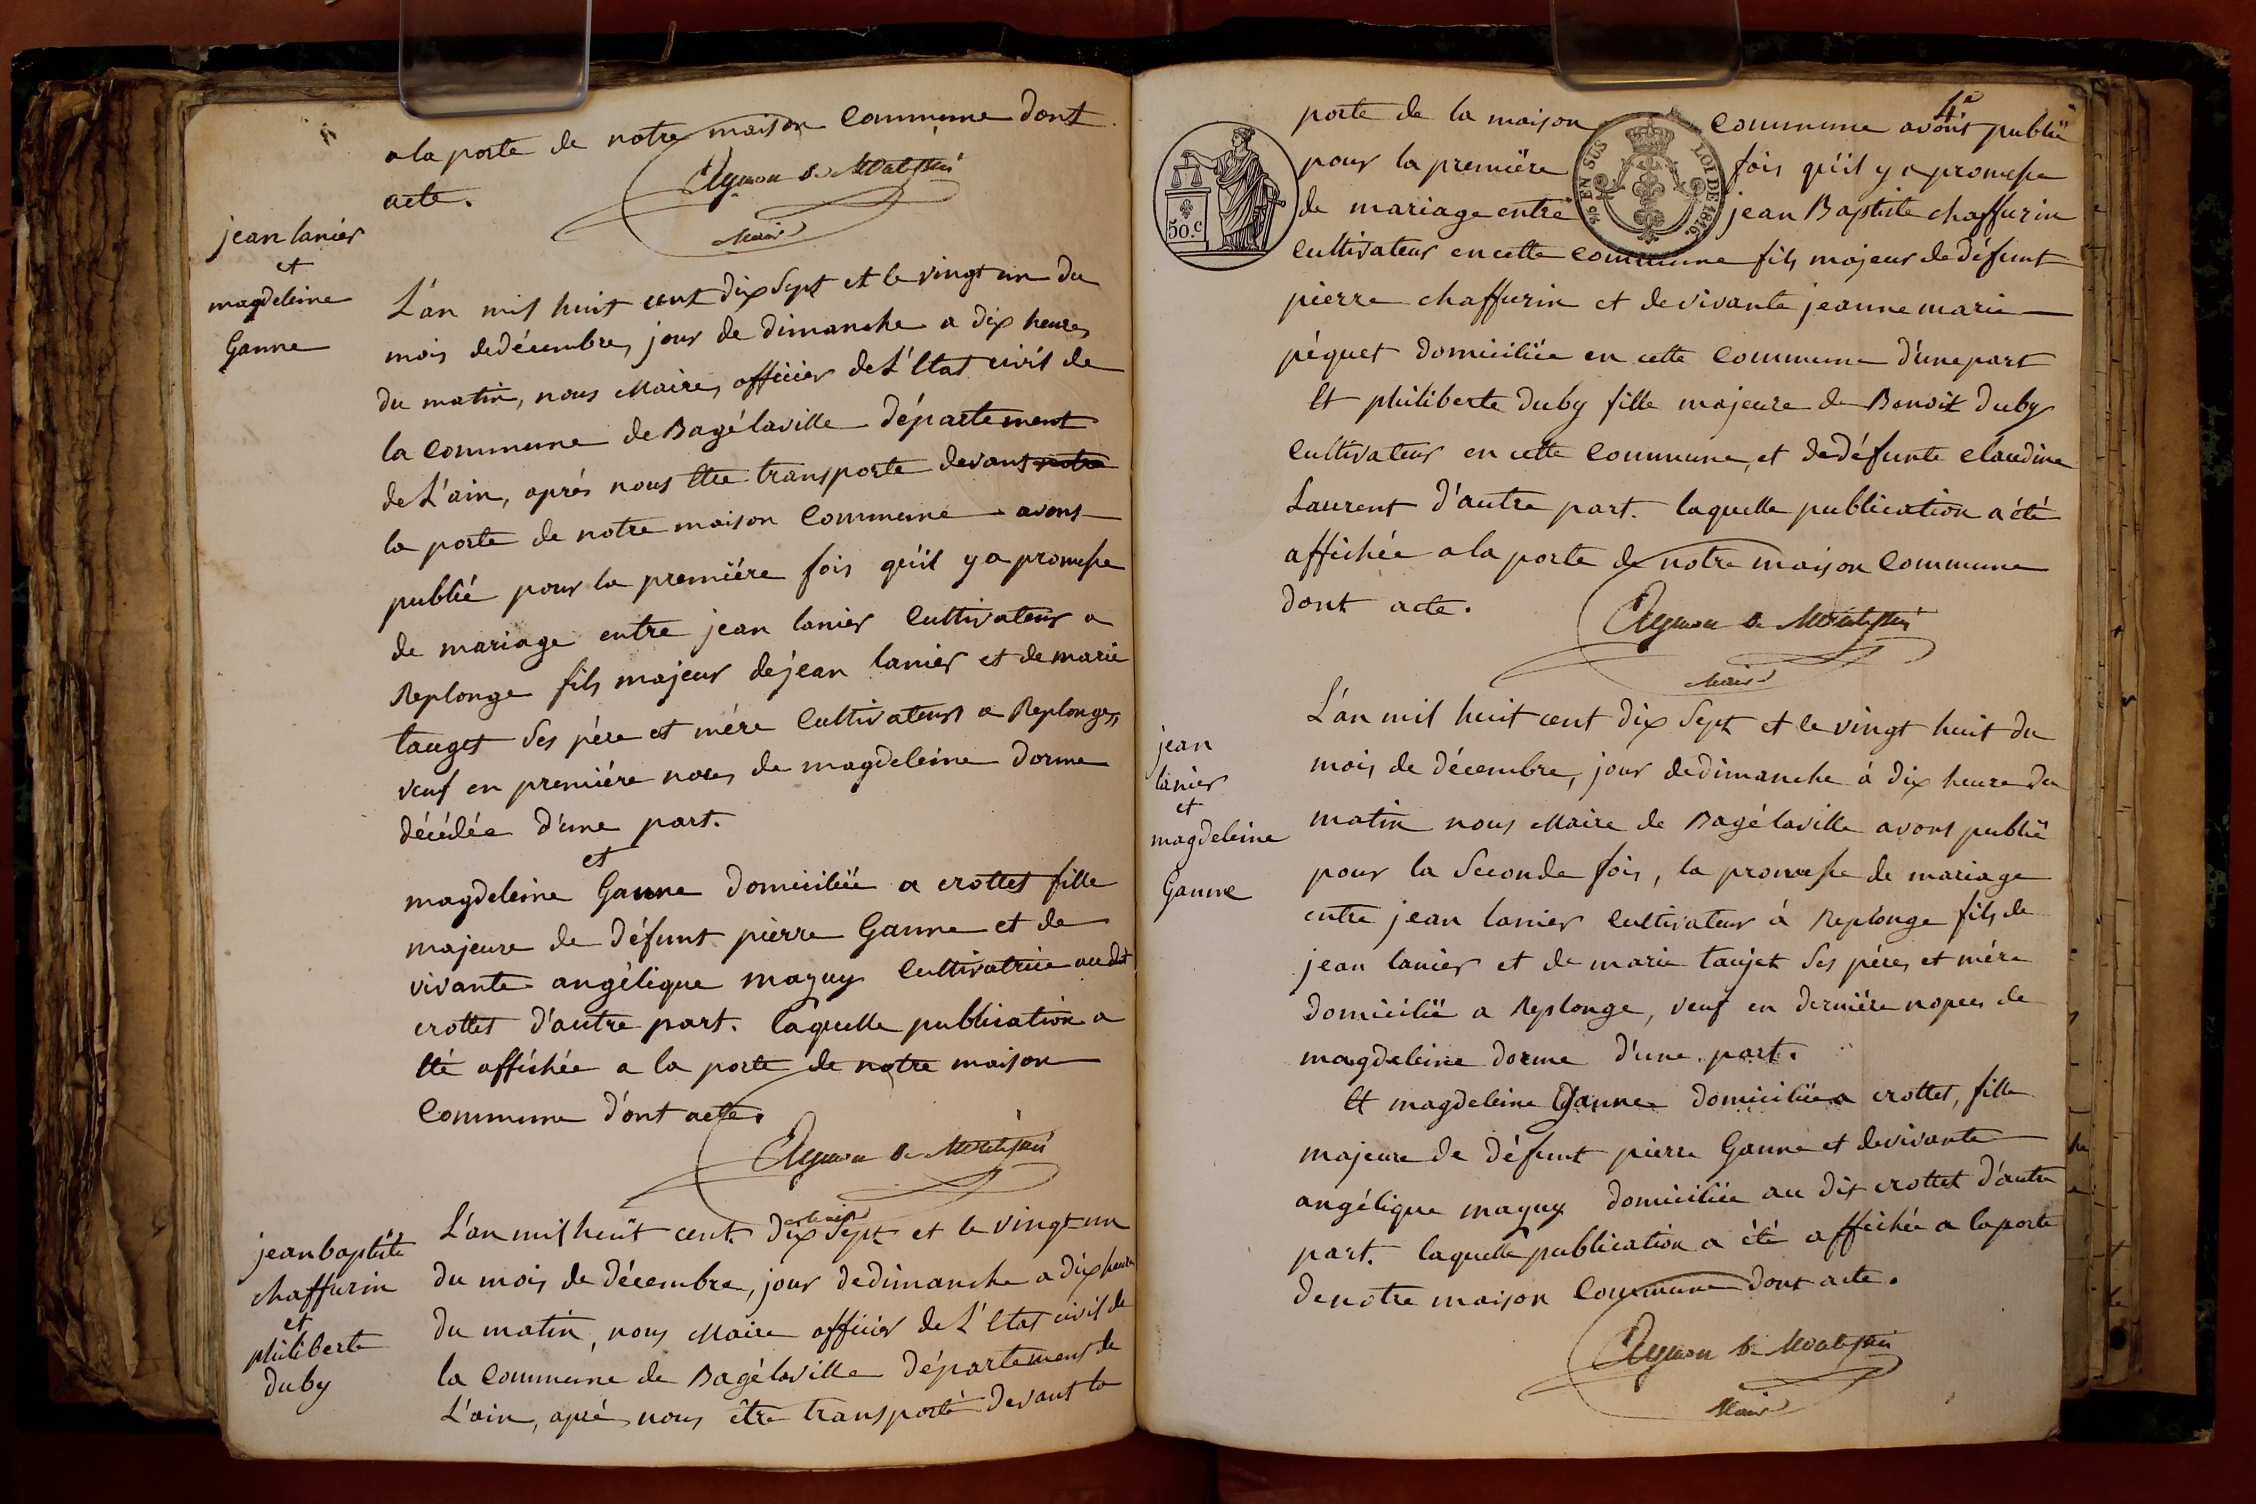 a la porte de notre maison commune dont
acte.
Maire
jean lanier
et
magdeleine
Ganne
L'an mil huit cent dix Sept et le vingt un du
mois de décembre, jour de dimanche a dix heures
du matin, nous Maire, officier de L'Etat civil de
la commune de Bagélaville département
de L'ain, aprés nous Etre transporte devant notre
la porte de notre maison commune avons
publié pour la premiére fois qu'il y a promesse
de mariage entre jean lanier cultivateur a
Replonge fils majeur de jean lanier et de marie
tauget Ses pére et mére cultivateurs a Replonge,
veuf en premiére noces de magdeleine dorme
décédée d'une part.
et
magdeleine Ganne domiciliée a crottet fille
majeure de défunt pierre Ganne et de
vivante angélique maguy cultivatrice au dit
crottet d'autre part. laquelle publication a
Eté affichée a la porte de notre maison
commune dont acte.
Maire
jean baptiste
chaffurin
et
philiberte
duby
L'an mil huit cent dix Sept et le vingt un
du mois de décembre, jour de dimanche a dix heures
du matin, nous Maire officier de L'Etat civil de
la commune de Bagélaville département de
L'ain, aprés nous être transporté devant la
4e
porte de la maison commune avons publié
pour la premiére fois qu'il y a promesse
de mariage entre jean Baptiste chaffurin
cultivateur en cette commune fils majeur de défunt
pierre chaffurin et de vivante jeanne marie
péquet domiciliée en cette commune d'une part
Et philiberte duby fille majeure de Benoit duby
cultivateur en cette commune, et de défunte claudine
Laurent d'autre part. laquelle publication a été
affichée a la porte de notre maison commune
dont acte.
Maire
50.c
EN SUS
LOI DE 1816.
jean
lanier
et
magdeleine
Ganne
L'an mil huit cent dix Sept et le vingt huit du
mois de décembre, jour de dimanche á dix heure du
matin nous Maire de Bagélaville avons publié
pour la Seconde fois, la promesse de mariage
entre jean lanier cultivateur á Replonge fils de
jean lanier et de marie taujet Ses pére, et mére
domicilié a Replonge, veuf en derniére nopces de
magdeleine dorme d'une part.
Et magdeleine Ganne domiciliée a crottet, fille
majeure de défunt pierre Ganne et de vivante
angélique maguy domiciliée au dit crottet d'autre
part. laquelle publication a été affichée a la porte
de notre maison commune dont acte.
Maire